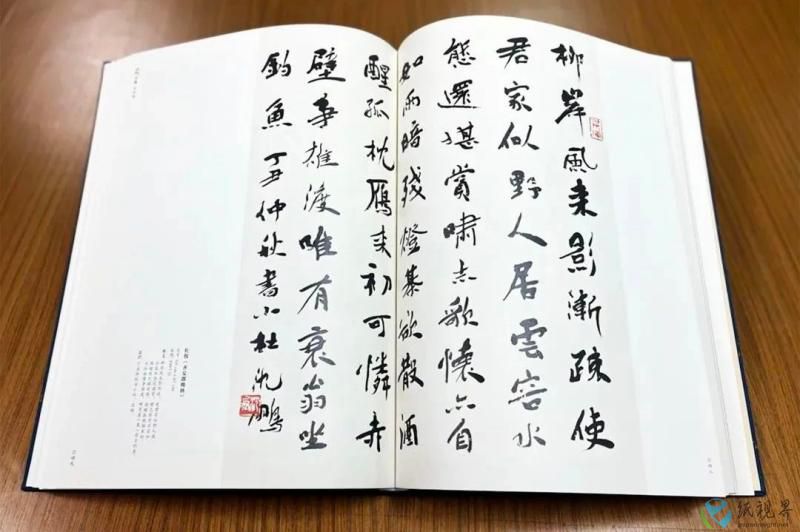 柳岸風来影漸疎使
君家似野人居雲容水
態還堪賞嘯志歌懷亦自
如雨暗殘燈棊欲散酒
醒孤枕鴈来初可憐赤
壁爭雄渡唯有衰翁坐
釣魚 丁丑仲秋書小杜 沈鵬
杜牧《齐安郡晚秋》
纸视界